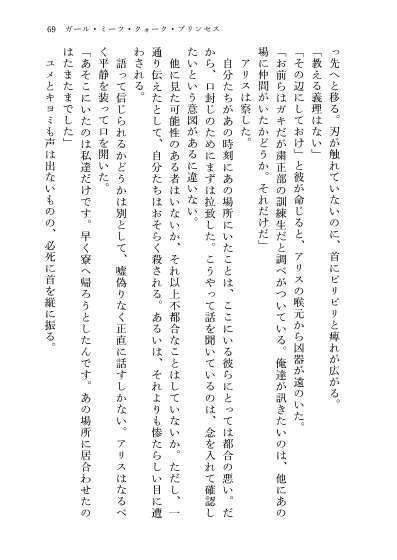 69　ガール・ミーツ・クォーク・プリンセス
っ先へと移る。刃が触れていないのに、首にピリピリと痺れが広がる。
「教える義理はない」
「その辺にしておけ」と彼が命じると、アリスの喉元から凶器が遠のいた。
「お前らはガキだが粛正部の訓練生だと調べがついている。俺達が訊きたいのは、他にあの
場に仲間がいたかどうか。それだけだ」
アリスは察した。
自分たちがあの時刻にあの場所にいたことは、ここにいる彼らにとっては都合の悪い。だ
から、口封じのためにまずは拉致した。こうやって話を聞いているのは、念を入れて確認し
たいという意図があるに違いない。
他に見た可能性のある者はいないか、それ以上不都合なことはしていないか。ただし、一
通り伝えたとして、自分たちはおそらく殺される。あるいは、それよりも惨たらしい目に遭
わされる。
語って信じられるかどうかは別として、嘘偽りなく正直に話すしかない。アリスはなるべ
く平静を装って口を開いた。
「あそこにいたのは私達だけです。早く寮へ帰ろうとしたんです。あの場所に居合わせたの
はたまたまでした」
ユメとキヨミも声は出ないものの、必死に首を縦に振る。